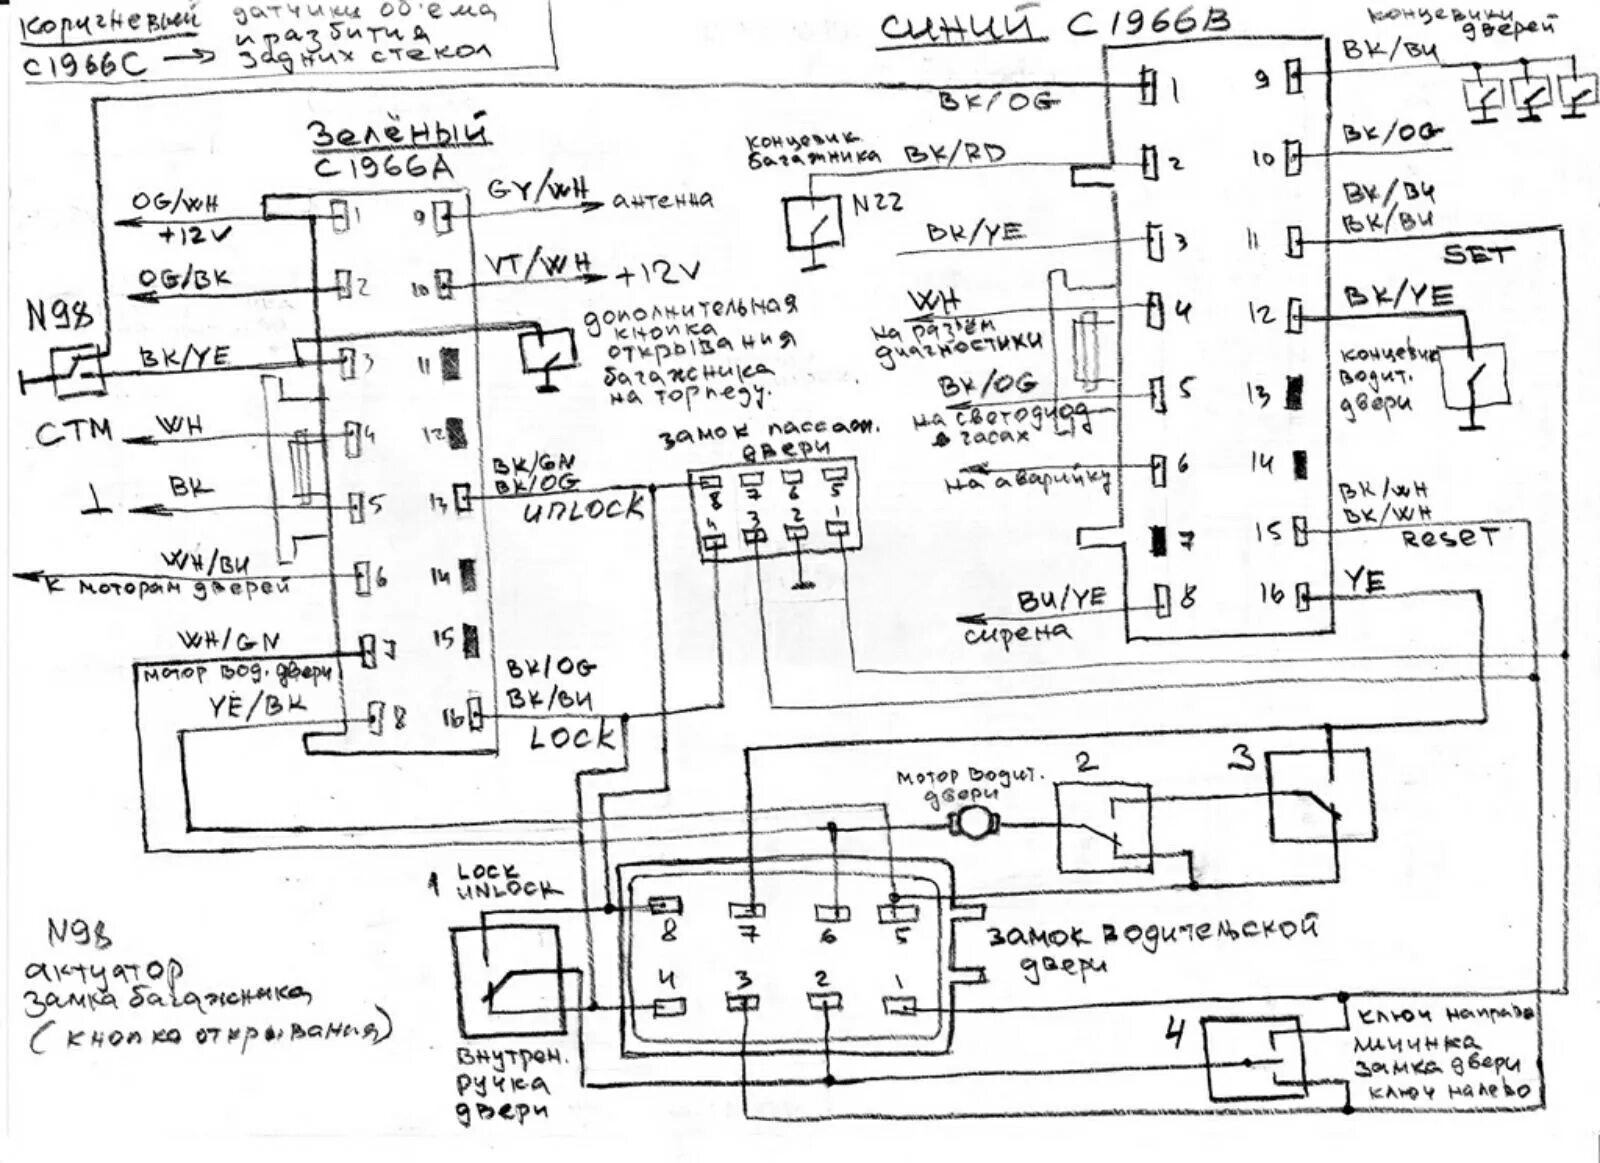 коричневый
С1966С →
датчики об'ема
и разбития
задних стекол
Зелёный
С1966А
OG/WH
+12V
1
OG/BK
2
N98
BK/YE
3
СТМ
WH
4
BK
5
WH/BU
к моторам дверей
6
WH/GN
мотор вод. двери
7
YE/BK
8
9
GY/WH
антенна
10
VT/WH
+12V
дополнительная
кнопка
открывания
багажника
на торпеду.
11
12
13
BK/GN
BK/OG
UNLOCK
14
15
16
BK/OG
BK/BU
LOCK
СИНИЙ С1966В
BK/OG
1
концевик
багажника
BK/RD
2
N22
BK/YE
3
WH
на раз'ем
диагностики
4
BK/OG
на светодиод
в часах
5
на аварийку
6
7
BU/YE
сирена
8
концевики
дверей
9
BK/BU
10
BK/OG
11
BK/BU
BK/BU
SET
12
BK/YE
концевик
водит.
двери
13
14
15
BK/WH
BK/WH
RESET
16
YE
замок пассаж.
двери
8 7 6 5
4 3 2 1
мотор водит.
двери
2
3
1 LOCK
UNLOCK
внутрен.
ручка
двери
8 7 6 5
4 3 2 1
замок водительской
двери
4
ключ направо
личинка
замка двери
ключ налево
N98
актуатор
замка багажника
(кнопка открывания)